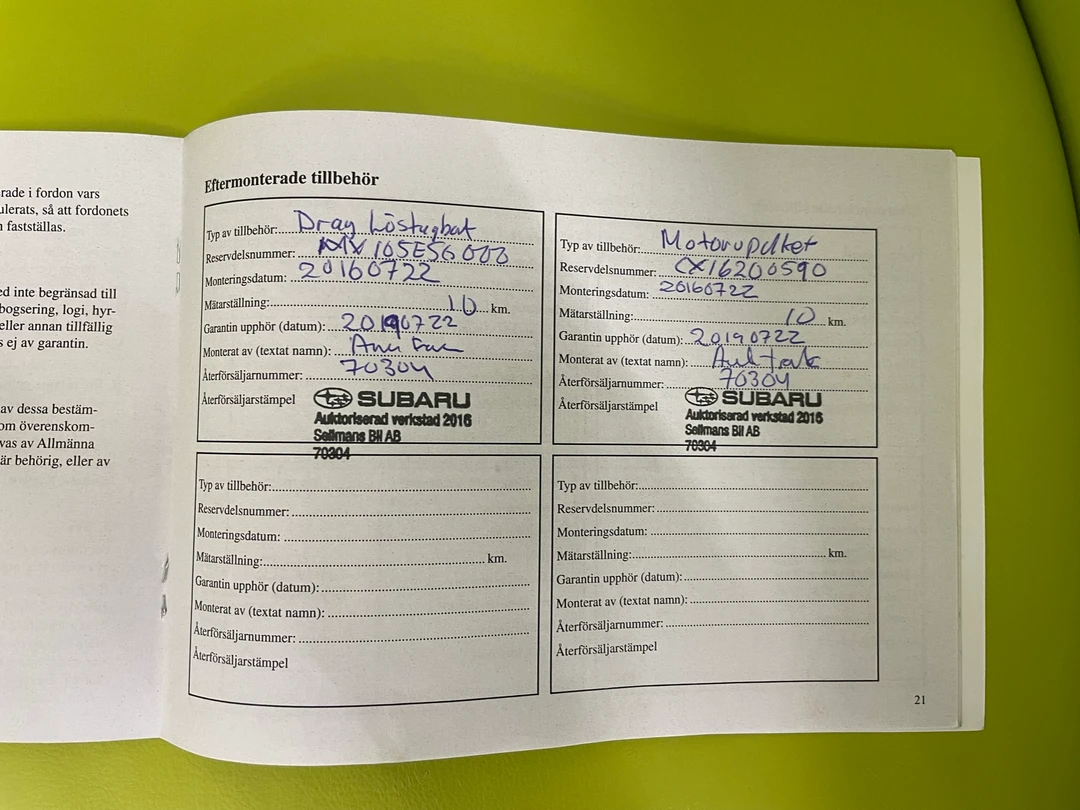 rade i fordon vars
ulerats, så att fordonets
fastställas.
ed inte begränsad till
bogsering, logi, hyr-
eller annan tillfällig
s ej av garantin.
av dessa bestäm-
om överenskom-
vas av Allmänna
är behörig, eller av
Eftermonterade tillbehör
Typ av tillbehör: Drag Löstagbat
Reservdelsnummer: 105ESG000
Monteringsdatum: 20160722
Mätarställning: 10 km.
Garantin upphör (datum): 20190722
Monterat av (textat namn):
Återförsäljarnummer: 70304
Återförsäljarstämpel
SUBARU
Auktoriserad verkstad 2016
Sellmans Bil AB
70304
Typ av tillbehör:
Reservdelsnummer: CX16200590
Monteringsdatum: 20160722
Mätarställning: 10 km.
Garantin upphör (datum): 20190722
Monterat av (textat namn):
Återförsäljarnummer: 70304
Återförsäljarstämpel
SUBARU
Auktoriserad verkstad 2016
Sellmans Bil AB
70304
Typ av tillbehör:
Reservdelsnummer:
Monteringsdatum:
Mätarställning: km.
Garantin upphör (datum):
Monterat av (textat namn):
Återförsäljarnummer:
Återförsäljarstämpel
Typ av tillbehör:
Reservdelsnummer:
Monteringsdatum:
Mätarställning: km.
Garantin upphör (datum):
Monterat av (textat namn):
Återförsäljarnummer:
Återförsäljarstämpel
21